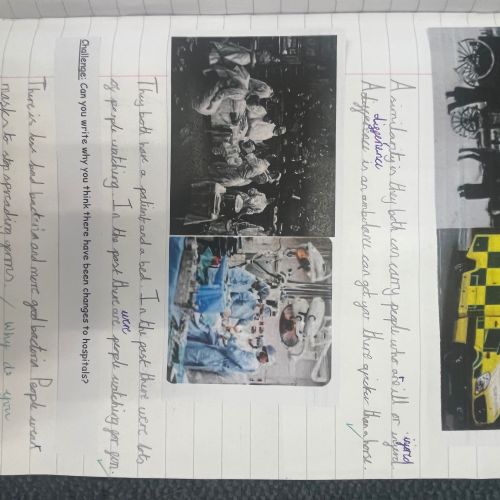 A similarity is they both can carry people who are ill or
difference
A is an ambulance can get you there quicker than a horse.
They both have a patient and a bed. In the past there were lots
were
of people watching. In the past there are people watching for fun.
Challenge: Can you write why you think there have been changes to hospitals?
There is less bad bacteria and more good bacteria. People wear
masks to stop spreading germs / Why do you